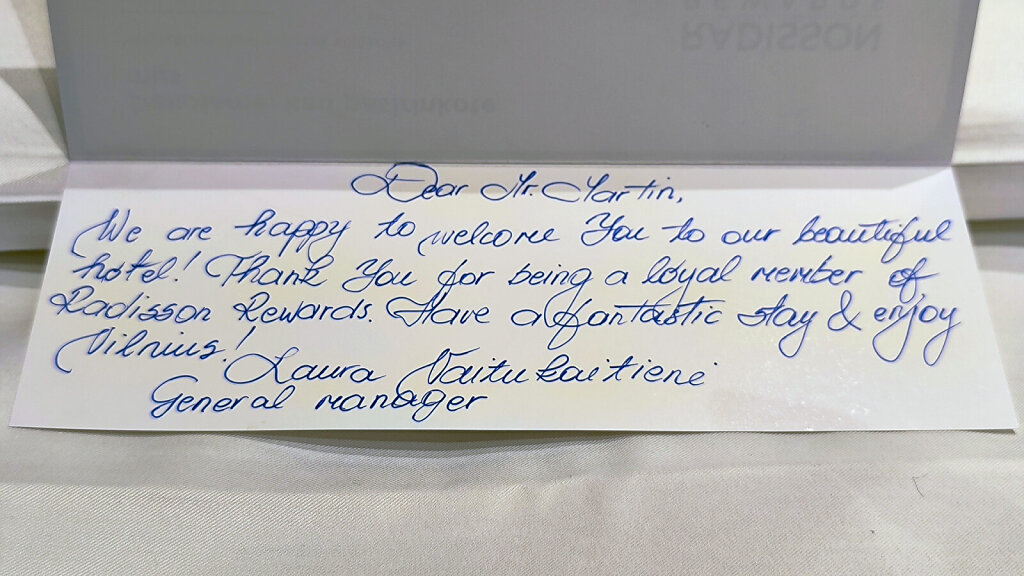 REWARDS
RADISSON
Dear Mr. Martin,
We are happy to welcome You to our beautiful
hotel! Thank You for being a loyal member of
Radisson Rewards. Have a fantastic stay & enjoy
Vilnius!
Laura Vaitukaitienė
General manager